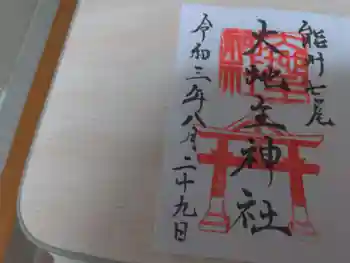 能州七尾
大地主神社
令和三年八月二十九日